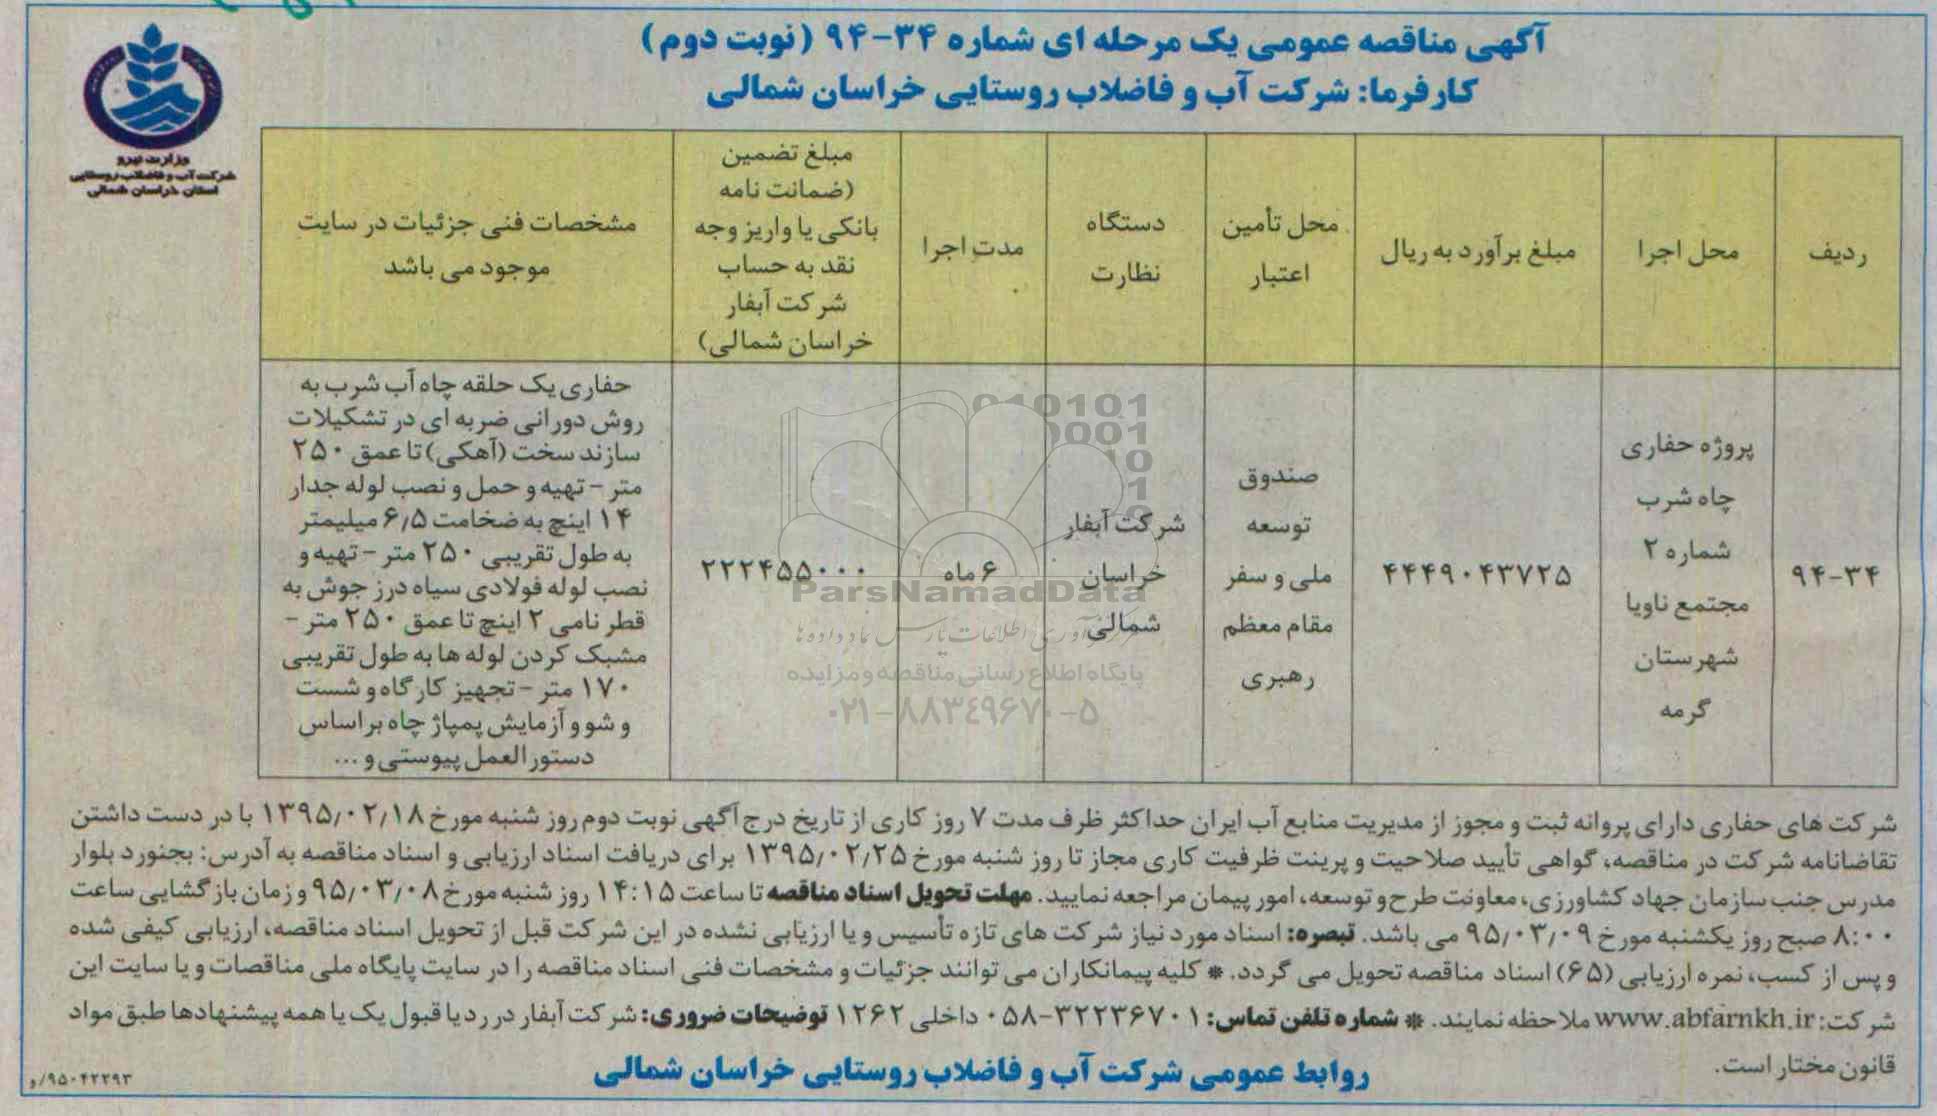 آگهی مناقصه عمومی یک مرحله ای شماره ۳۴-۹۴ (نوبت دوم)
کارفرما: شرکت آب و فاضلاب روستایی خراسان شمالی
وزارت نیرو
شرکت آب و فاضلاب روستایی
استان خراسان شمالی
ردیف
محل اجرا
مبلغ برآورد به ریال
محل تأمین
اعتبار
دستگاه
نظارت
مدت اجرا
مبلغ تضمین
(ضمانت نامه
بانکی یا واریز وجه
نقد به حساب
شرکت آبفار
خراسان شمالی)
مشخصات فنی جزئیات در سایت
موجود می باشد
۹۴-۳۴
پروژه حفاری
چاه شرب
شماره ۲
مجتمع ناویا
شهرستان
گرمه
۴۴۴۹۰۴۳۷۲۵
صندوق
توسعه
ملی و سفر
مقام معظم
رهبری
شرکت آبفار
خراسان
شمالی
۶ ماه
۲۲۲۴۵۵۰۰۰
حفاری یک حلقه چاه آب شرب به
روش دورانی ضربه ای در تشکیلات
سازند سخت (آهکی) تا عمق ۲۵۰
متر – تهیه و حمل و نصب لوله جدار
۱۴ اینچ به ضخامت ۶٫۵ میلیمتر
به طول تقریبی ۲۵۰ متر – تهیه و
نصب لوله فولادی سیاه درز جوش به
قطر نامی ۲ اینچ تا عمق ۲۵۰ متر –
مشبک کردن لوله ها به طول تقریبی
۱۷۰ متر – تجهیز کارگاه و شست
و شو و آزمایش پمپاژ چاه بر اساس
دستورالعمل پیوستی و ...
010101
0001
10
1
0
ParsNamadData
پایگاه اطلاع رسانی مناقصه و مزایده
۰۲۱-۸۸۳۴۹۶۷۰-۵
شرکت های حفاری دارای پروانه ثبت و مجوز از مدیریت منابع آب ایران حداکثر ظرف مدت ۷ روز کاری از تاریخ درج آگهی نوبت دوم روز شنبه مورخ ۱۳۹۵/۰۲/۱۸ با در دست داشتن
تقاضانامه شرکت در مناقصه، گواهی تأیید صلاحیت و پرینت ظرفیت کاری مجاز تا روز شنبه مورخ ۱۳۹۵/۰۲/۲۵ برای دریافت اسناد ارزیابی و اسناد مناقصه به آدرس: بجنورد بلوار
مدرس جنب سازمان جهاد کشاورزی، معاونت طرح و توسعه، امور پیمان مراجعه نمایید. مهلت تحویل اسناد مناقصه تا ساعت ۱۴:۱۵ روز شنبه مورخ ۹۵/۰۳/۰۸ و زمان بازگشایی ساعت
۸:۰۰ صبح روز یکشنبه مورخ ۹۵/۰۳/۰۹ می باشد. تبصره: اسناد مورد نیاز شرکت های تازه تأسیس و یا ارزیابی نشده در این شرکت قبل از تحویل اسناد مناقصه، ارزیابی کیفی شده
و پس از کسب، نمره ارزیابی (۶۵) اسناد مناقصه تحویل می گردد. * کلیه پیمانکاران می توانند جزئیات و مشخصات فنی اسناد مناقصه را در سایت پایگاه ملی مناقصات و یا سایت این
شرکت: www.abfarnkh.ir ملاحظه نمایند. * شماره تلفن تماس: ۳۲۲۳۶۷۰۱-۰۵۸ داخلی ۱۲۶۲ توضیحات ضروری: شرکت آبفار در رد یا قبول یک یا همه پیشنهادها طبق مواد
قانون مختار است.
روابط عمومی شرکت آب و فاضلاب روستایی خراسان شمالی
۹۵۰۴۲۲۹۳/و